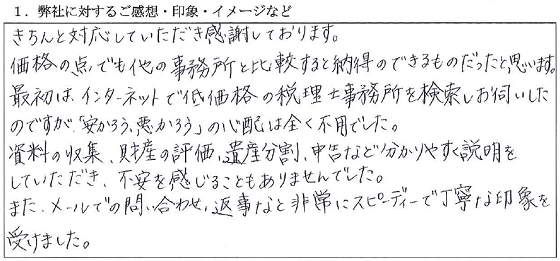 1．弊社に対するご感想・印象・イメージなど
きちんと対応していただき感謝しております。
価格の点でも他の事務所と比較すると納得のできるものだったと思います。
最初は、インターネットで低価格の税理士事務所を検索しお伺いした
のですが、「安かろう、悪かろう」の心配は全く不用でした。
資料の収集、財産の評価、遺産分割、申告など分かりやすく説明を
していただき、不安を感じることもありませんでした。
また、メールでの問い合わせ、返事など非常にスピーディーで丁寧な印象を
受けました。